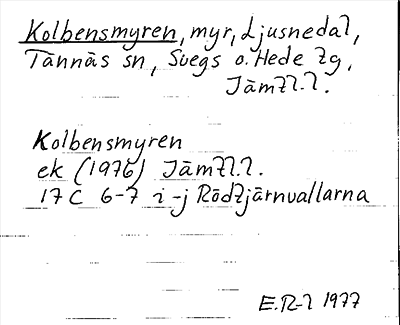 Kolbensmyren, myr, Ljusnedal,
Tännäs sn, Svegs o. Hede tg,
Jämtl.l.
Kolbensmyren
ek (1976) Jämtl.l.
17 C 6-7 i-j Rödtjärnvallarna
E.R-l 1977